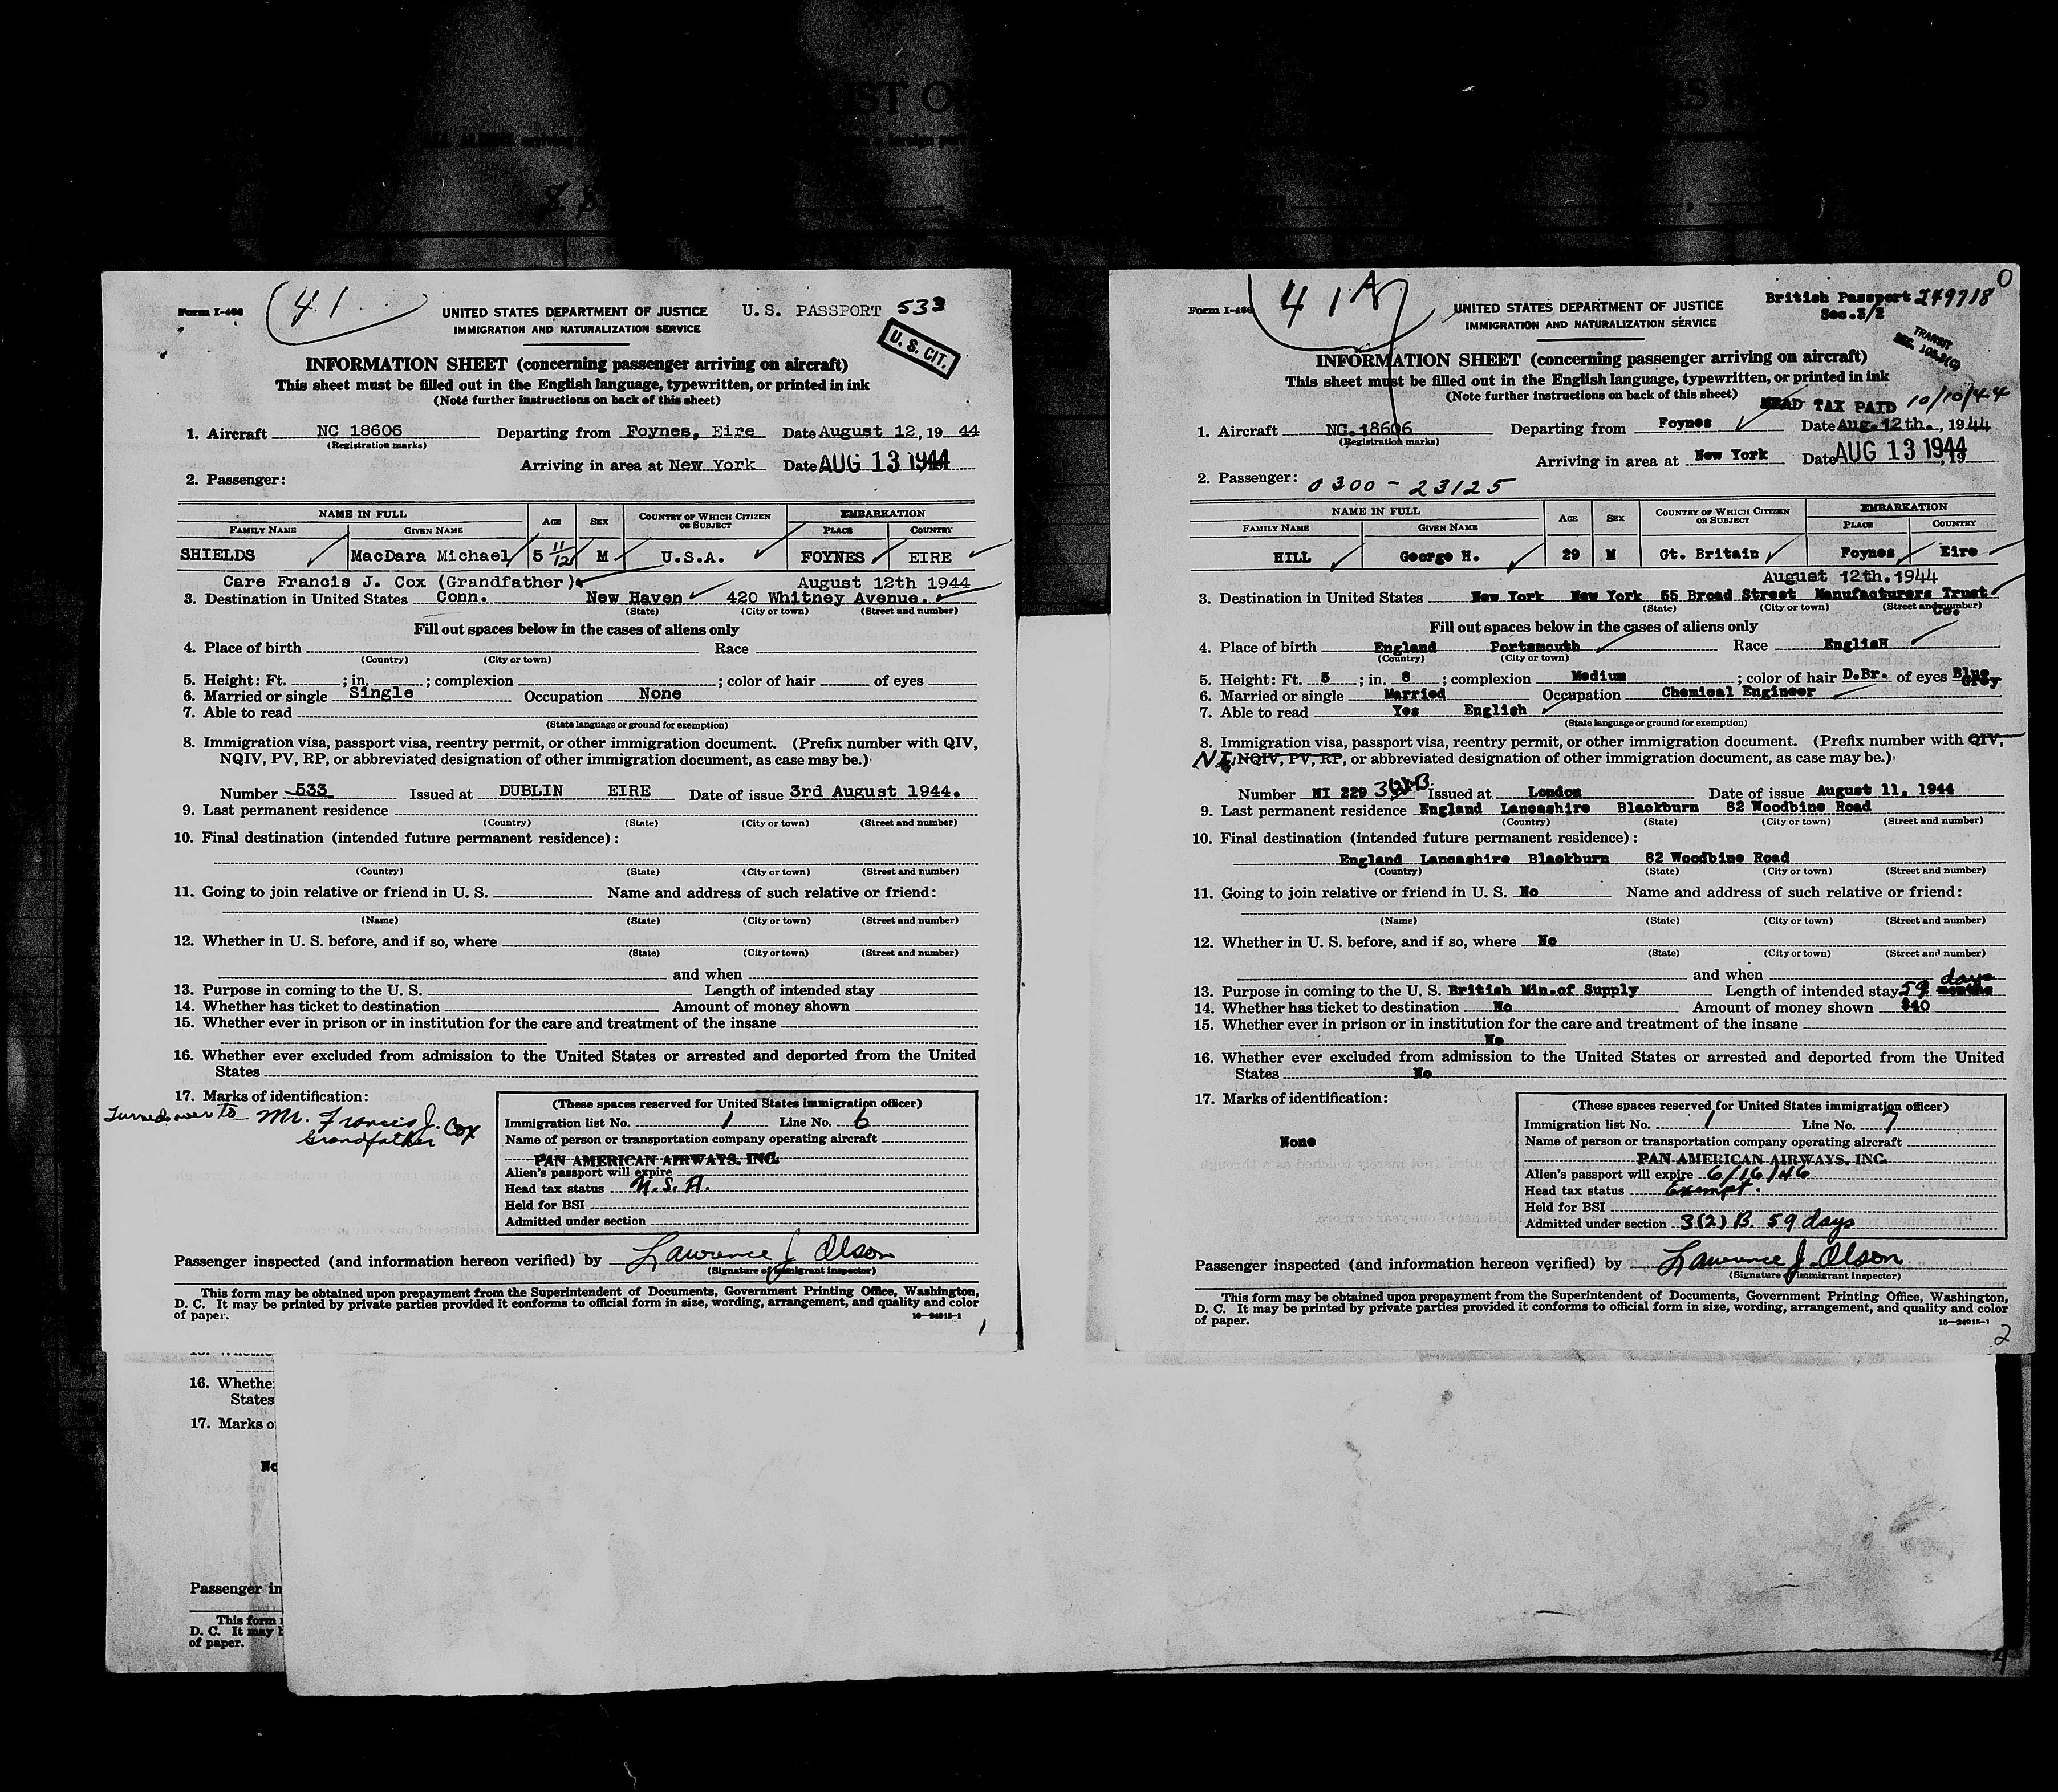 Form I-466
41
UNITED STATES DEPARTMENT OF JUSTICE
U.S. PASSPORT 533
IMMIGRATION AND NATURALIZATION SERVICE
U. S. CIT.
INFORMATION SHEET (concerning passenger arriving on aircraft)
This sheet must be filled out in the English language, typewritten, or printed in ink
(Note further instructions on back of this sheet)
1. Aircraft NC 18606 Departing from Foynes, Eire Date August 12, 19 44
(Registration marks)
Arriving in area at New York Date AUG 13 1944
2. Passenger:
NAME IN FULL AGE SEX COUNTRY OF WHICH CITIZEN OR SUBJECT EMBARKATION
FAMILY NAME GIVEN NAME PLACE COUNTRY
SHIELDS MacDara Michael 5 11/12 M U.S.A. FOYNES EIRE
Care Francis J. Cox (Grandfather) August 12th 1944
3. Destination in United States Conn. New Haven 420 Whitney Avenue.
(State) (City or town) (Street and number)
Fill out spaces below in the cases of aliens only
4. Place of birth Race
(Country) (City or town)
5. Height: Ft. ; in. ; complexion ; color of hair of eyes
6. Married or single Single Occupation None
7. Able to read
(State language or ground for exemption)
8. Immigration visa, passport visa, reentry permit, or other immigration document. (Prefix number with QIV,
NQIV, PV, RP, or abbreviated designation of other immigration document, as case may be.)
Number 533 Issued at DUBLIN EIRE Date of issue 3rd August 1944.
9. Last permanent residence
(Country) (State) (City or town) (Street and number)
10. Final destination (intended future permanent residence):
(Country) (State) (City or town) (Street and number)
11. Going to join relative or friend in U. S. Name and address of such relative or friend:
(Name) (State) (City or town) (Street and number)
12. Whether in U. S. before, and if so, where
(State) (City or town) (Street and number)
and when
13. Purpose in coming to the U. S. Length of intended stay
14. Whether has ticket to destination Amount of money shown
15. Whether ever in prison or in institution for the care and treatment of the insane
16. Whether ever excluded from admission to the United States or arrested and deported from the United
States
17. Marks of identification:
Turned over to Mr. Francis J. Cox
Grandfather
(These spaces reserved for United States immigration officer)
Immigration list No. 1 Line No. 6
Name of person or transportation company operating aircraft
PAN AMERICAN AIRWAYS, INC.
Alien's passport will expire
Head tax status U.S.A.
Held for BSI
Admitted under section
Passenger inspected (and information hereon verified) by Lawrence J Olson
(Signature of immigrant inspector)
This form may be obtained upon prepayment from the Superintendent of Documents, Government Printing Office, Washington,
D. C. It may be printed by private parties provided it conforms to official form in size, wording, arrangement, and quality and color
of paper. 16—24915-1
1
Form I-466
41A
UNITED STATES DEPARTMENT OF JUSTICE
British Passport 249718
Sec.3/2
IMMIGRATION AND NATURALIZATION SERVICE
TRANSIT
INFORMATION SHEET (concerning passenger arriving on aircraft)
This sheet must be filled out in the English language, typewritten, or printed in ink
(Note further instructions on back of this sheet)
HEAD TAX PAID 10/10/44
1. Aircraft NC.18606 Departing from Foynes Date Aug. 12th., 1944
(Registration marks)
Arriving in area at New York Date AUG 13 1944, 19
2. Passenger: 0300-23125
NAME IN FULL AGE SEX COUNTRY OF WHICH CITIZEN OR SUBJECT EMBARKATION
FAMILY NAME GIVEN NAME PLACE COUNTRY
HILL George H. 29 M Gt. Britain Foynes Eire
August 12th.1944
3. Destination in United States New York New York 55 Broad Street Manufacturers Trust Co.
(State) (City or town) (Street and number)
Fill out spaces below in the cases of aliens only
4. Place of birth England Portsmouth Race EnglisH
(Country) (City or town)
5. Height: Ft. 5 ; in. 8 ; complexion Medium ; color of hair D.Br. of eyes Blue Grey
6. Married or single Married Occupation Chemical Engineer
7. Able to read Yes English
(State language or ground for exemption)
8. Immigration visa, passport visa, reentry permit, or other immigration document. (Prefix number with QIV,
NI, NQIV, PV, RP, or abbreviated designation of other immigration document, as case may be.)
Number NI 229 Issued at London Date of issue August 11, 1944
9. Last permanent residence England Lancashire Blackburn 82 Woodbine Road
(Country) (State) (City or town) (Street and number)
10. Final destination (intended future permanent residence):
England Lancashire Blackburn 82 Woodbine Road
(Country) (State) (City or town) (Street and number)
11. Going to join relative or friend in U. S. No Name and address of such relative or friend:
(Name) (State) (City or town) (Street and number)
12. Whether in U. S. before, and if so, where No
(State) (City or town) (Street and number)
and when
13. Purpose in coming to the U. S. British Min.of Supply Length of intended stay 59 days months
14. Whether has ticket to destination No Amount of money shown $40
15. Whether ever in prison or in institution for the care and treatment of the insane
No
16. Whether ever excluded from admission to the United States or arrested and deported from the United
States No
17. Marks of identification:
None
(These spaces reserved for United States immigration officer)
Immigration list No. 1 Line No. 7
Name of person or transportation company operating aircraft
PAN AMERICAN AIRWAYS, INC.
Alien's passport will expire 6/16/46
Head tax status Exempt.
Held for BSI
Admitted under section 3(2) B. 59 days
Passenger inspected (and information hereon verified) by Lawrence J. Olson
(Signature of immigrant inspector)
This form may be obtained upon prepayment from the Superintendent of Documents, Government Printing Office, Washington,
D. C. It may be printed by private parties provided it conforms to official form in size, wording, arrangement, and quality and color
of paper. 16—24915-1
2
16. Whethe
States
17. Marks o
No
Passenger in
This form
D. C. It may b
of paper.